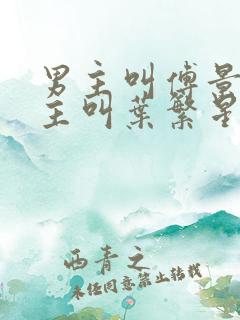 男主叫傅景
主叫葉繁星
西青之
未经同意禁止转载